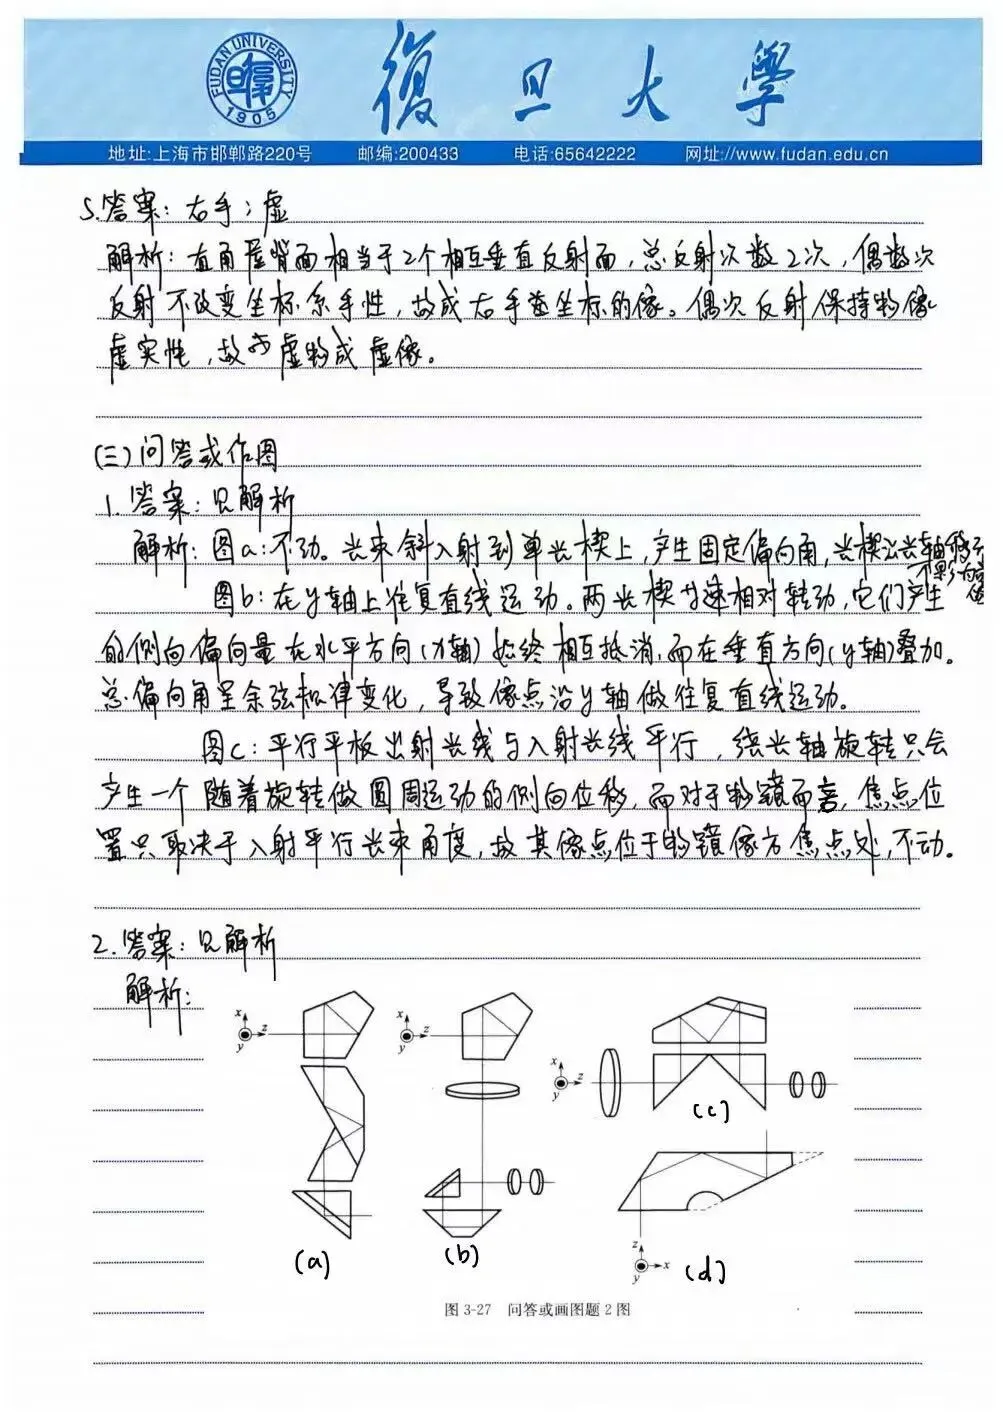 FUDAN UNIVERSITY
1905
復旦大學
地址:上海市邯郸路220号 邮编:200433 电话:65642222 网址://www.fudan.edu.cn
5.答案：右手；虚
解析：直角屋脊面相当于2个相互垂直反射面，总反射次数2次，偶数次
反射不改变坐标系手性，故成右手坐标的像。偶次反射保持物像
虚实性，故虚物成虚像。
(三)问答或作图
1.答案：见解析
解析：图a：不动。光束斜入射到单光楔上，产生固定偏向角，光楔沿光轴移动不影响
图b：在y轴上往复直线运动。两光楔等速相对转动，它们产生
的侧向偏向量在水平方向(x轴)始终相互抵消，而在垂直方向(y轴)叠加。
总偏向角呈余弦规律变化，导致像点沿y轴做往复直线运动。
图c：平行平板出射光线与入射光线平行，绕光轴旋转只会
产生一个随着旋转做圆周运动的侧向位移，而对于物镜而言，焦点位
置只取决于入射平行光束角度，故其像点位于物镜像方焦点处，不动。
2.答案：见解析
解析：
x z y
x z y
x z y
(a)
(b)
(c)
z x y
(d)
图 3-27 问答或画图题 2 图